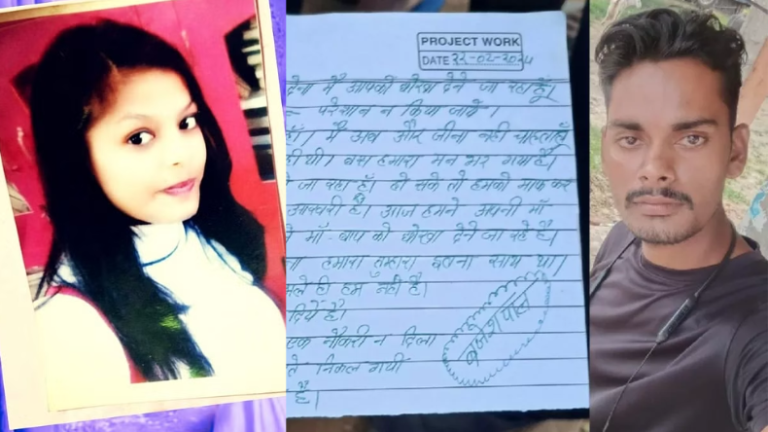 PROJECT WORK
DATE 22-02-2024
देना मैं आपको धोखा देने जा रहा हूँ।
परेशान न किया जाये।
हूँ। मैं अब और जीना नहीं चाहता हूँ
थी। बस हमारा मन भर गया है।
जा रहा हूँ। हो सके तो हमको माफ कर
है। आज हमने अपनी माँ
माँ-बाप को धोखा देने जा रहे है।
हमारा तुम्हारा इतना साथ था।
ही हम नहीं है।
दिये है।
एक नौकरी न दिला
निकल गयी
है।